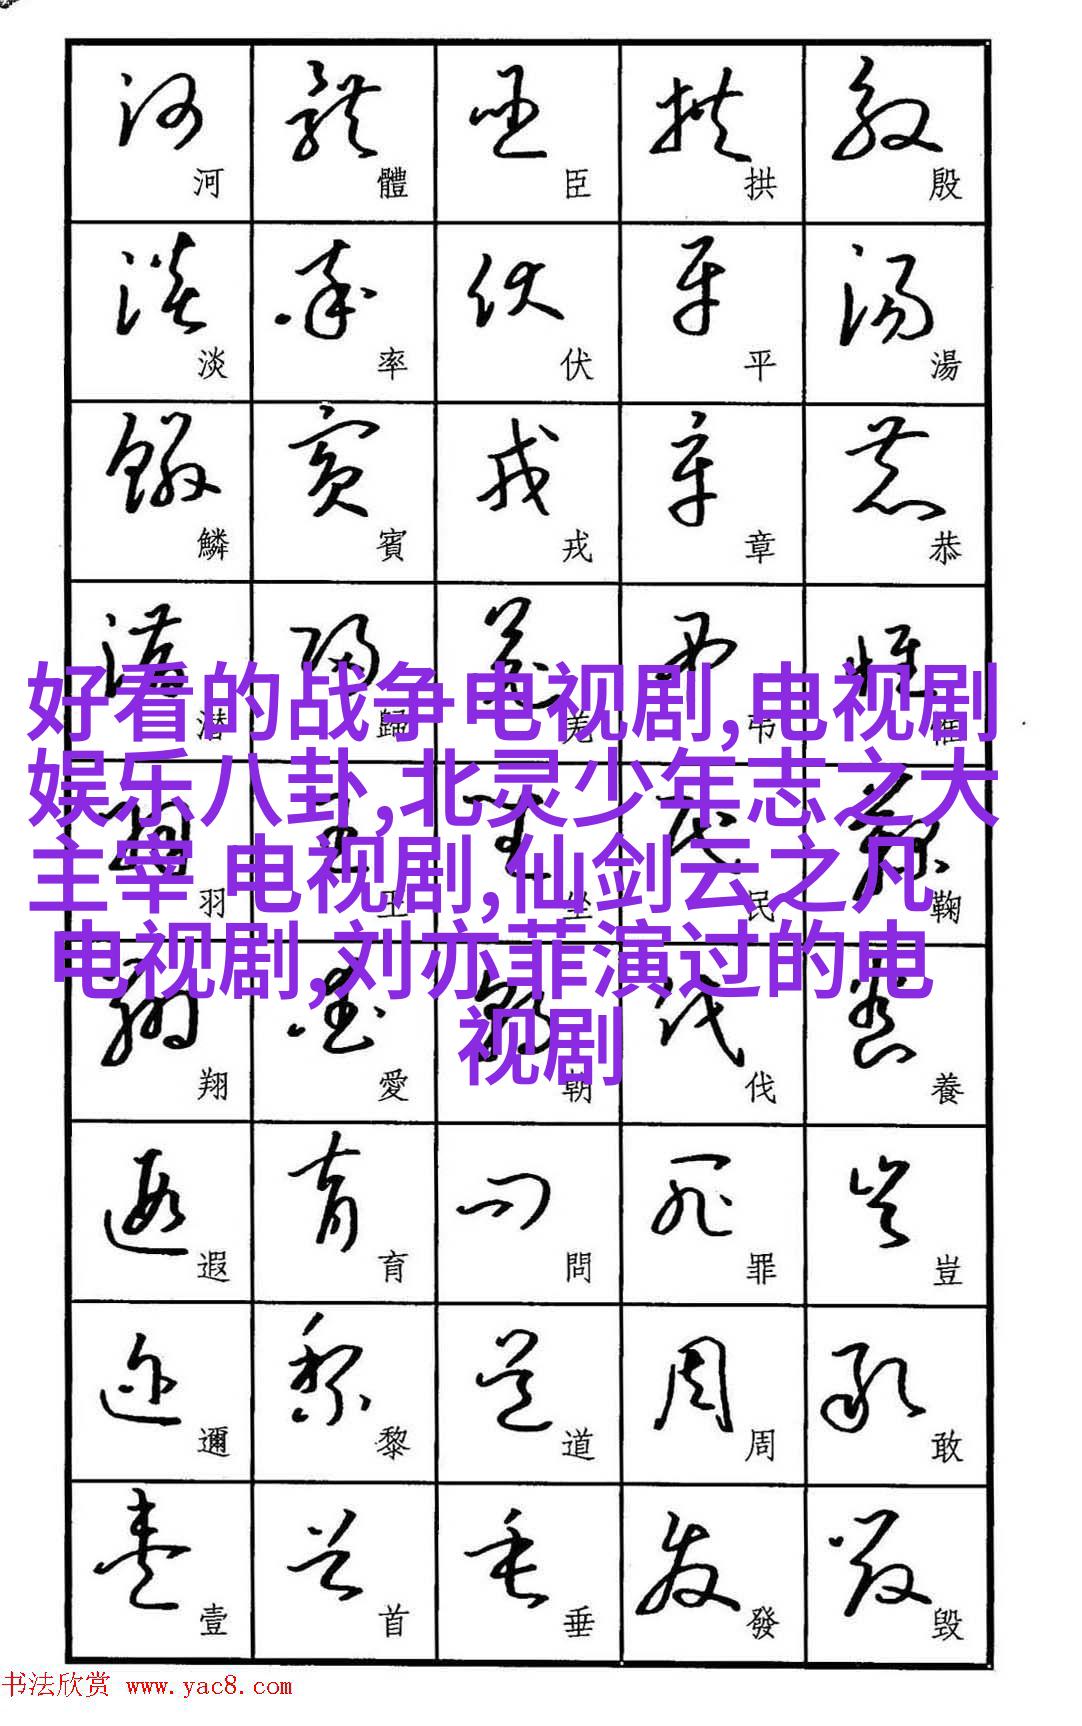 河 體 臣 拱 殷
淡 率 伏 平 湯
鱗 賓 戎 章 恭
潜 歸 羌 弔 惟
好看的战争电视剧,电视剧
娱乐八卦,北灵少年志之大
主宰 电视剧,仙剑云之凡
电视剧,刘亦菲演过的电
视剧
羽 王 坐 民 鞠
翔 愛 朝 伐 養
遐 育 問 罪 豈
邇 黎 道 周 敢
壹 首 垂 發 毀
书法欣赏 www.yac8.com